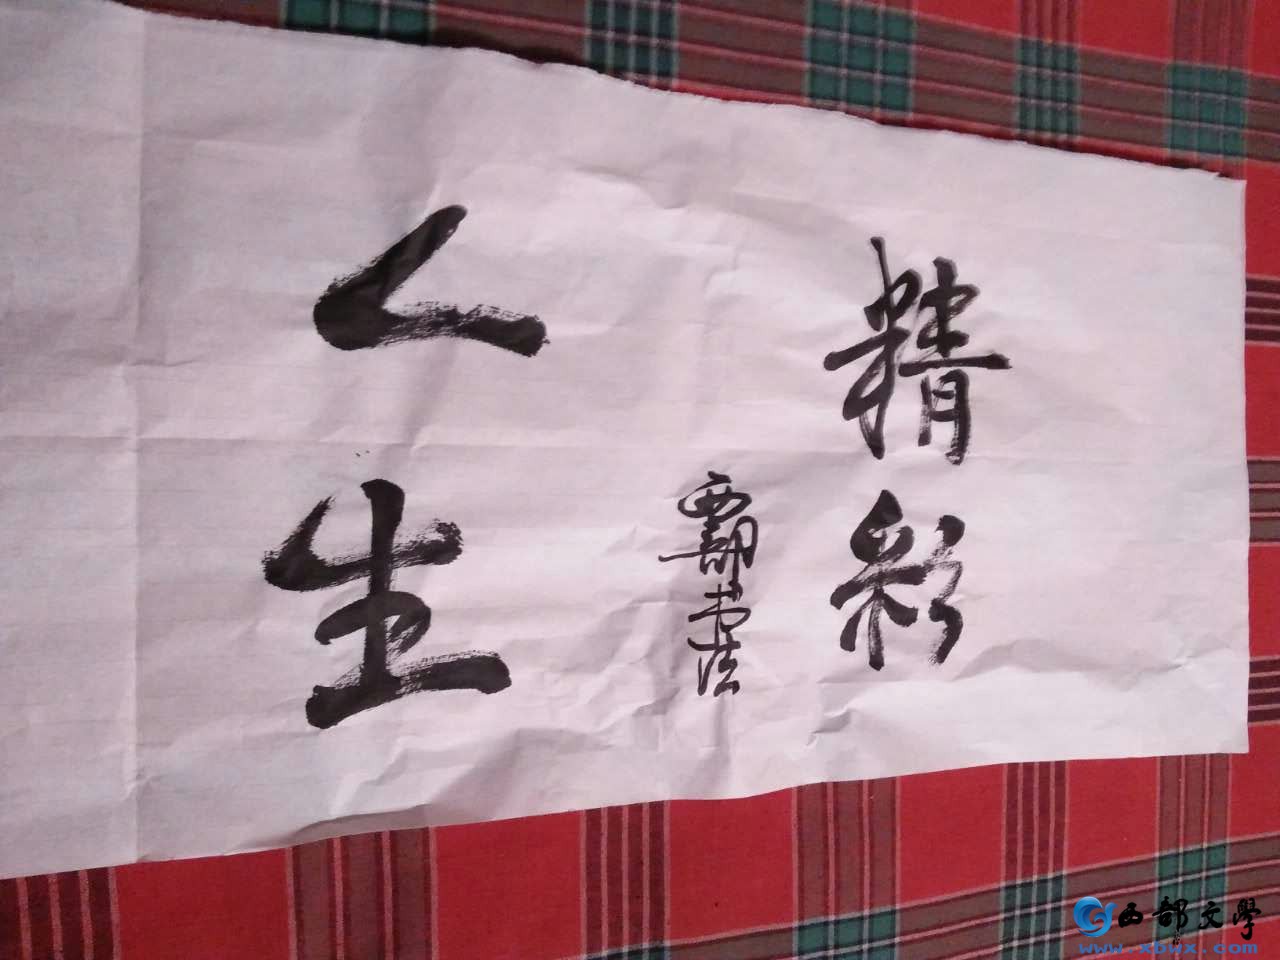 精彩
人生
书法
西部文學
www.xbwx.com